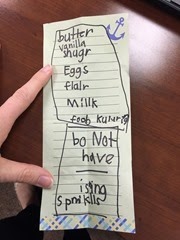 butter
vanilla
shugr
Eggs
flalr
Millk
foob kulering
bo Not
have
ising
Sprinklls